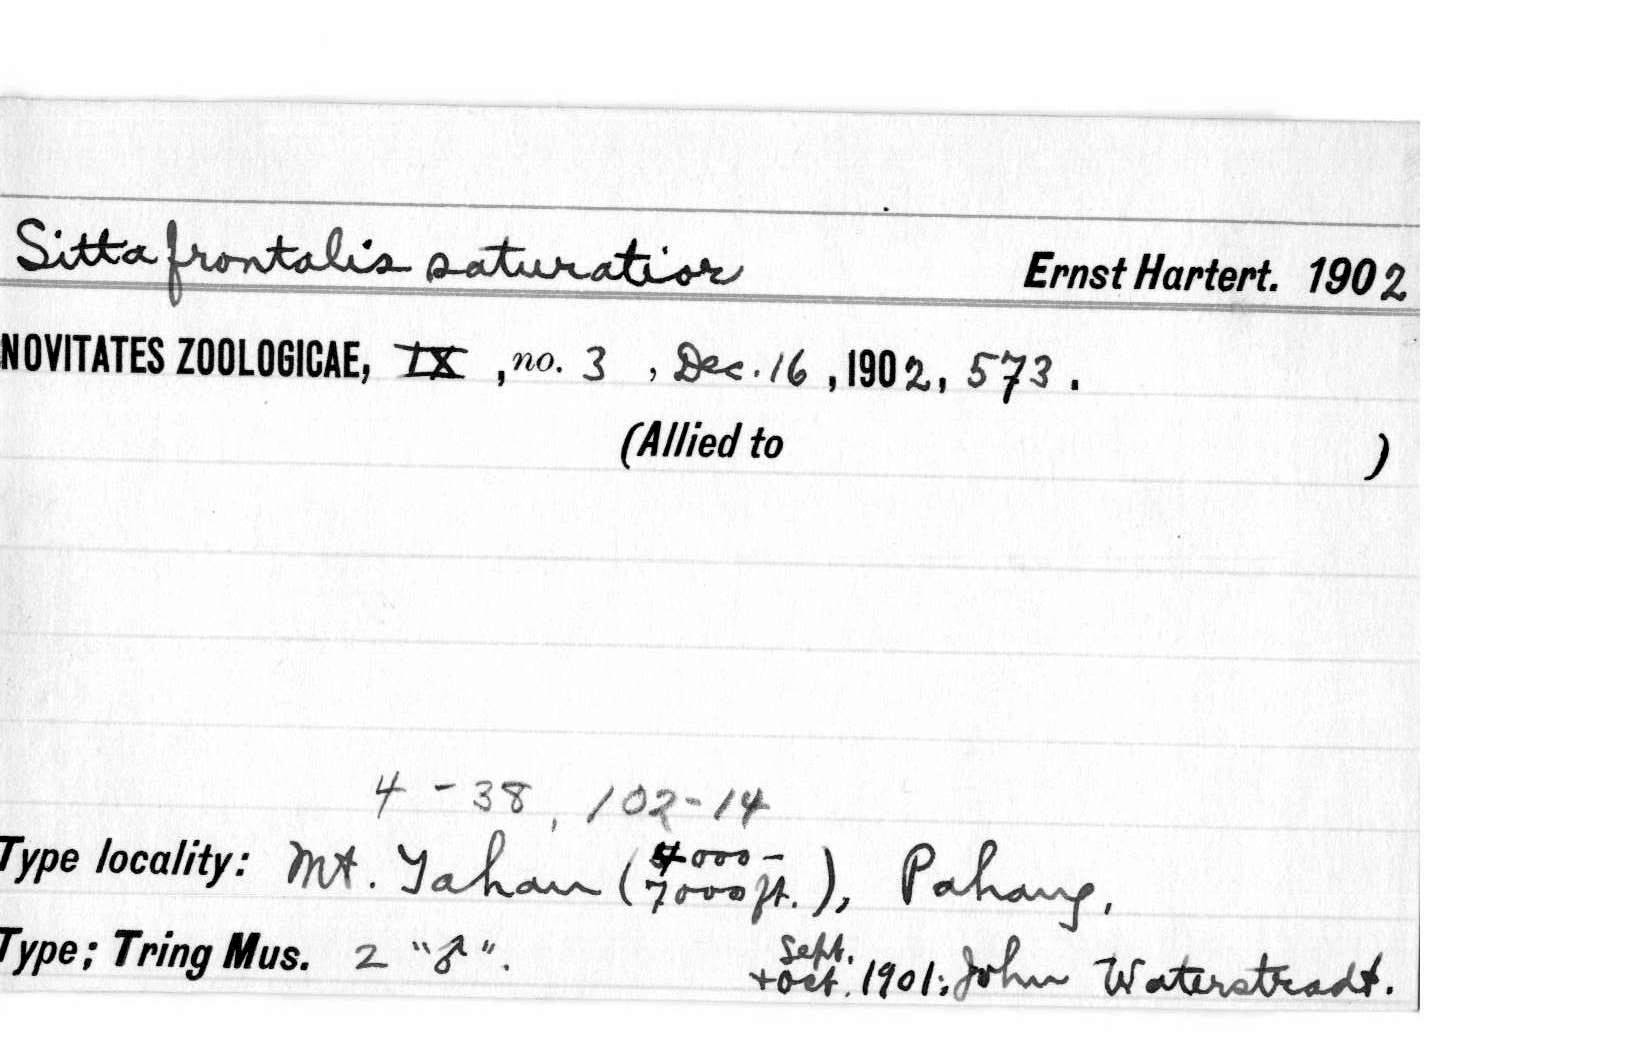 Sitta frontalis saturatior Ernst Hartert. 1902
NOVITATES ZOOLOGICAE, IX, no. 3, Dec. 16, 1902, 573.
(Allied to )
4 - 38, 102-14
Type locality: Mt. Tahan (4000-
7000 ft.), Pahang,
Type; Tring Mus. 2 "♂". Sept.
+ Oct. 1901; John Waterstradt.